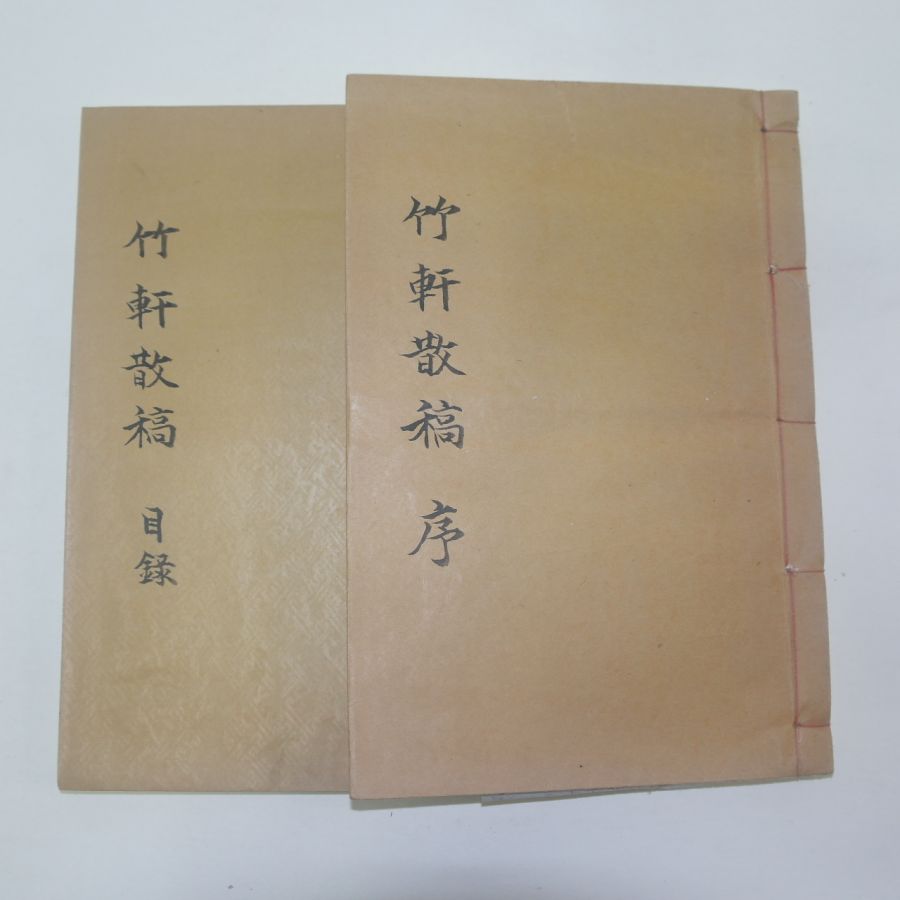 竹軒散稿 序
竹軒散稿 目錄